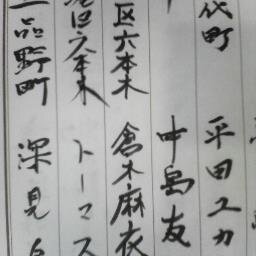 代町 平田ユカ
中島友
区六本木 倉木麻衣
港区六本木 トーマス
品野町 深見